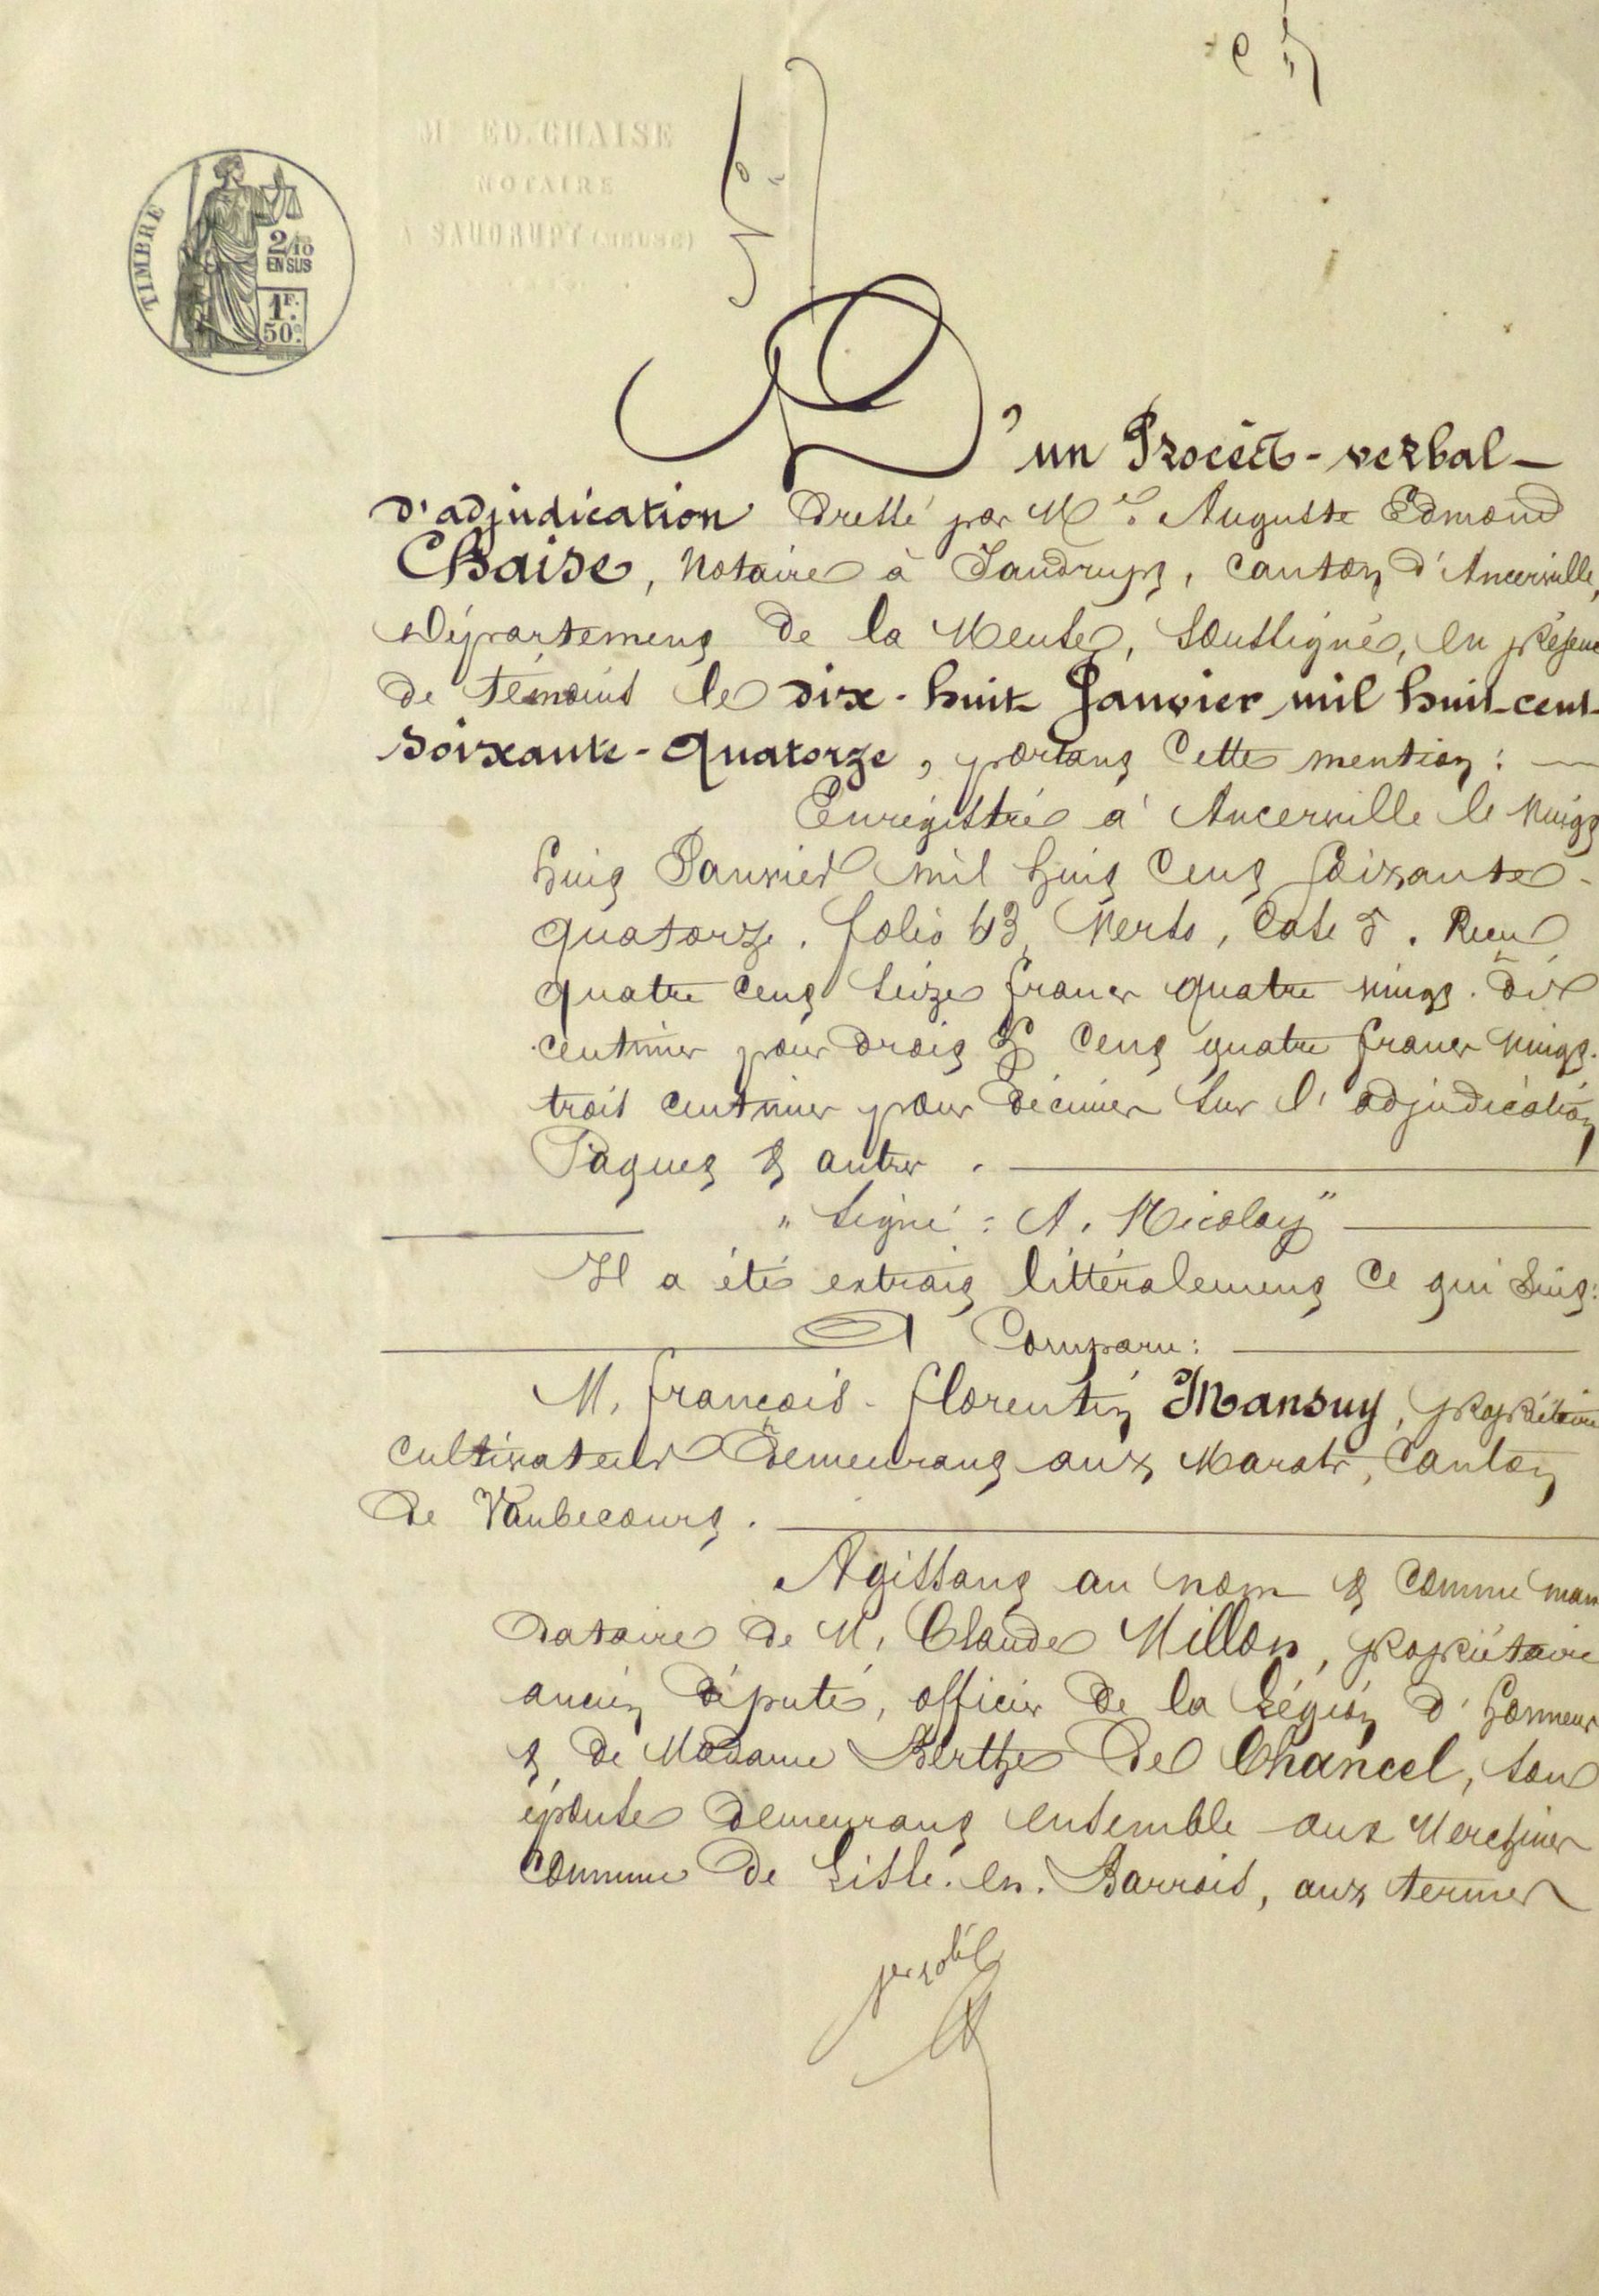 TIMBRE
2/10
EN SUS
1F.
50c.
Me ED. CHAISE
NOTAIRE
A SAUDRUPT (MEUSE)
D'un Procès-verbal
d'adjudication dressé par Me Auguste Edmond
Chaise, Notaire à Saudrupt, canton d'Ancerville,
Département de la Meuse, soussigné, en présence
de témoins le dix-huit Janvier mil huit-cent-
soixante-quatorze, portant cette mention :
Enregistré à Ancerville le vingt
huit Janvier mil huit cent soixante-
quatorze. folio 43, Verso, Case 5. Reçu
quatre cent seize francs quatre vingt-dix
centimes pour droit & cent quatre francs vingt-
trois centimes pour décimes sur l'adjudication
Paquez & autres.
" Signé : A. Nicolay "
Il a été extrait littéralement ce qui suit :
Comparu :
M. François-Florentin Mansuy, propriétaire
cultivateur demeurant aux Marats, canton
de Vaubecourt.
Agissant au nom & comme man
dataire de M. Claude Millon, propriétaire
ancien député, officier de la Légion d'honneur
& de Madame Berthe de Chancel, son
épouse demeurant ensemble aux Merchines
commune de Lisle-en-Barrois, aux termes